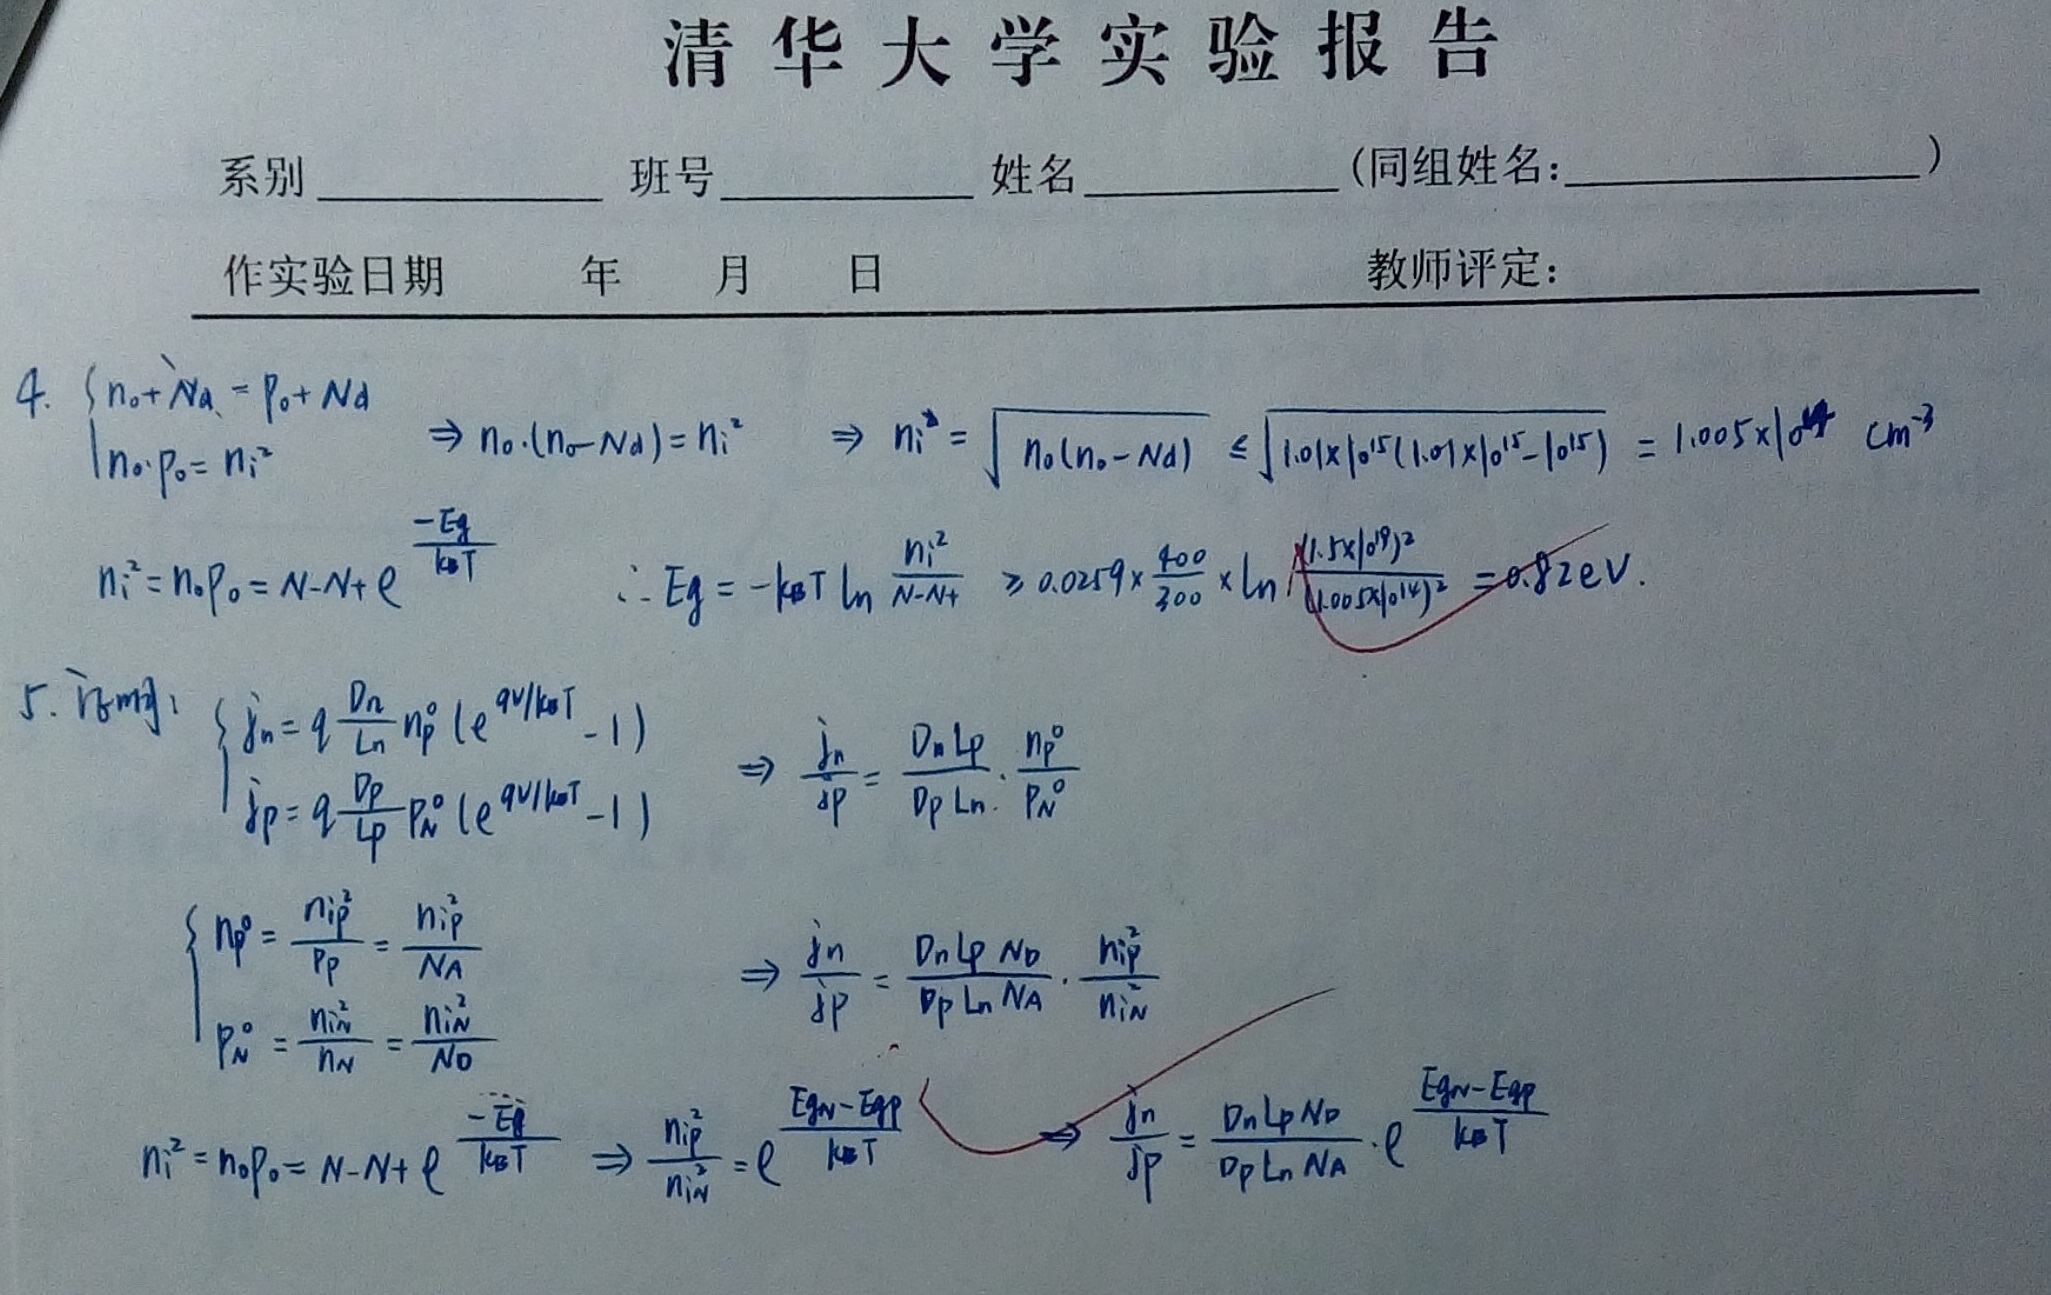 清华大学实验报告
系别 班号 姓名 (同组姓名: )
作实验日期 年 月 日 教师评定:
4. { n₀+Na = p₀+Nd
n₀·p₀ = nᵢ² ⇒ n₀·(n₀-Nd) = nᵢ² ⇒ nᵢ = √(n₀(n₀-Nd)) ≤ √(1.01×10¹⁵(1.01×10¹⁵-10¹⁵)) = 1.005×10¹⁴ cm⁻³
nᵢ² = n₀p₀ = N-N+ e^(-Eg/kBT) ∴ Eg = -kBT ln (nᵢ²/N-N+) ≥ 0.0259×400/300×ln (1.5×10¹⁹)²/(1.005×10¹⁴)² = 0.82eV.
5. 证明: { jn = q Dn/Ln np⁰ (e^(qV/kBT) -1)
jp = q Dp/Lp PN⁰ (e^(qV/kBT) -1) ⇒ jn/jp = DnLp/DpLn · np⁰/PN⁰
{ np⁰ = nip²/Pp = nip²/NA
PN⁰ = niN²/nN = niN²/ND ⇒ jn/jp = DnLpND/DpLnNA · nip²/niN²
nᵢ² = n₀p₀ = N-N+ e^(-Eg/kBT) ⇒ nip²/niN² = e^((EgN-EgP)/kBT) ⇒ jn/jp = DnLpND/DpLnNA · e^((EgN-EgP)/kBT)